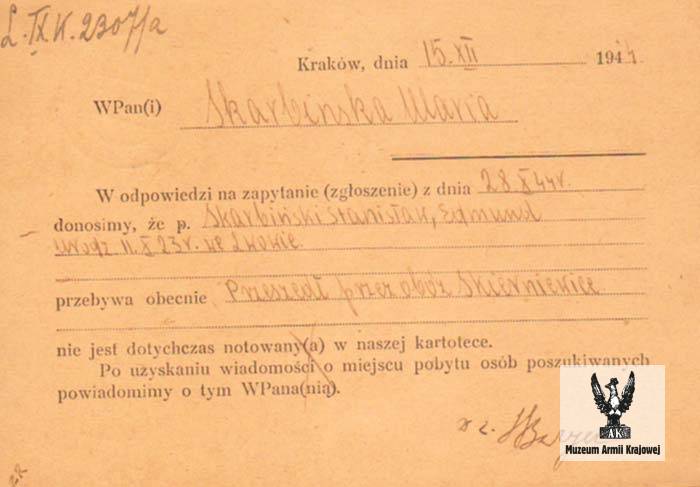 L. IX K. 2307/a
Kraków, dnia 15.XII 1944.
WPan(i) Skarbińska Maria
W odpowiedzi na zapytanie (zgłoszenie) z dnia 28 X 44r.
donosimy, że p. Skarbiński Stanisław, Edmund
urodz. 11. X 23 r. we Lwowie
przebywa obecnie Przeszedł przez obóz Skierniewice
nie jest dotychczas notowany(a) w naszej kartotece.
Po uzyskaniu wiadomości o miejscu pobytu osób poszukiwanych
powiadomimy o tym WPana(nią).
z.
AK
Muzeum Armii Krajowej